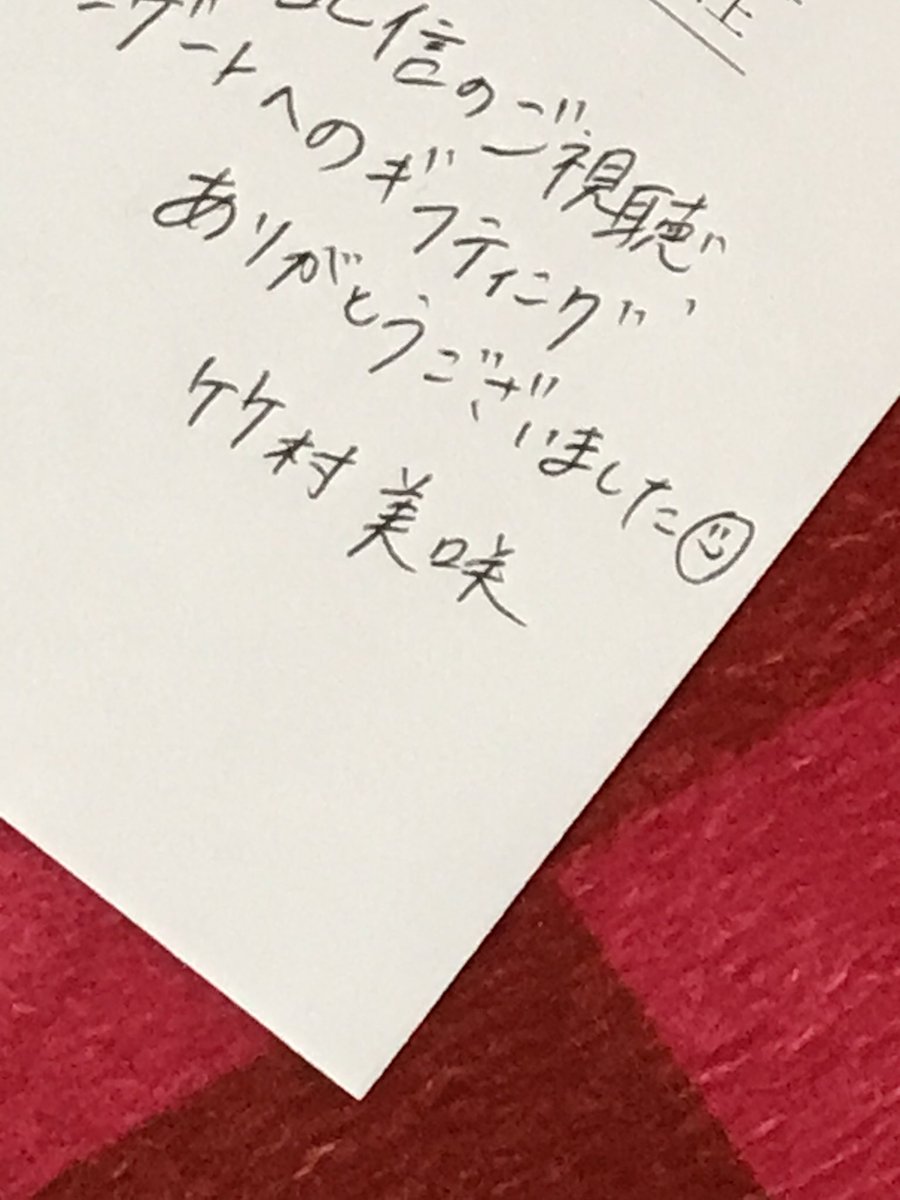 配信のご視聴
ゲートへのギフティング、
ありがとうございました
竹村美咲